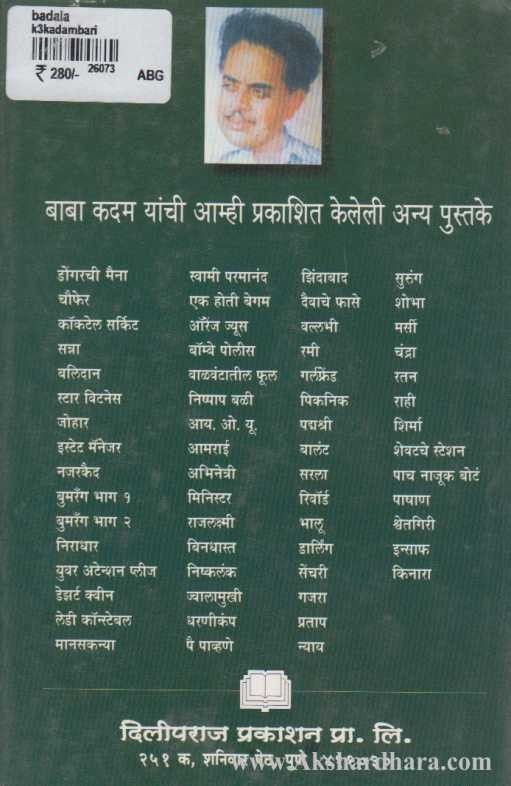 badala
k3kadambari
₹ 280/- 26073 ABG
बाबा कदम यांची आम्ही प्रकाशित केलेली अन्य पुस्तके
डोंगरची मैना
चौफेर
कॉकटेल सर्किट
सत्रा
बलिदान
स्टार विटनेस
जोहार
इस्टेट मॅनेजर
नजरकैद
बुमरँग भाग १
बुमरँग भाग २
निराधार
युवर अटेन्शन प्लीज
डेझर्ट क्वीन
लेडी कॉन्स्टेबल
मानसकन्या
स्वामी परमानंद
एक होती बेगम
ऑरेंज ज्यूस
बॉम्बे पोलीस
वाळवंटातील फूल
निष्पाप बळी
आय. ओ. यू.
आमराई
अभिनेत्री
मिनिस्टर
राजलक्ष्मी
बिनधास्त
निष्कलंक
ज्वालामुखी
धरणीकंप
पै पाव्हणे
झिंदाबाद
दैवाचे फासे
वल्लभी
रमी
गर्लफ्रेंड
पिकनिक
पद्मश्री
बालंट
सरला
रिवॉर्ड
भालू
डार्लिंग
सेंचरी
गजरा
प्रताप
न्याय
सुरुंग
शोभा
मर्सी
चंद्रा
रतन
राही
शिर्मा
शेवटचे स्टेशन
पाच नाजूक बोटं
पाषाण
श्वेतगिरी
इन्साफ
किनारा
दिलीपराज प्रकाशन प्रा. लि.
२५१ क, शनिवार पेठ, पुणे ४११०३०
www.Akshardhara.com